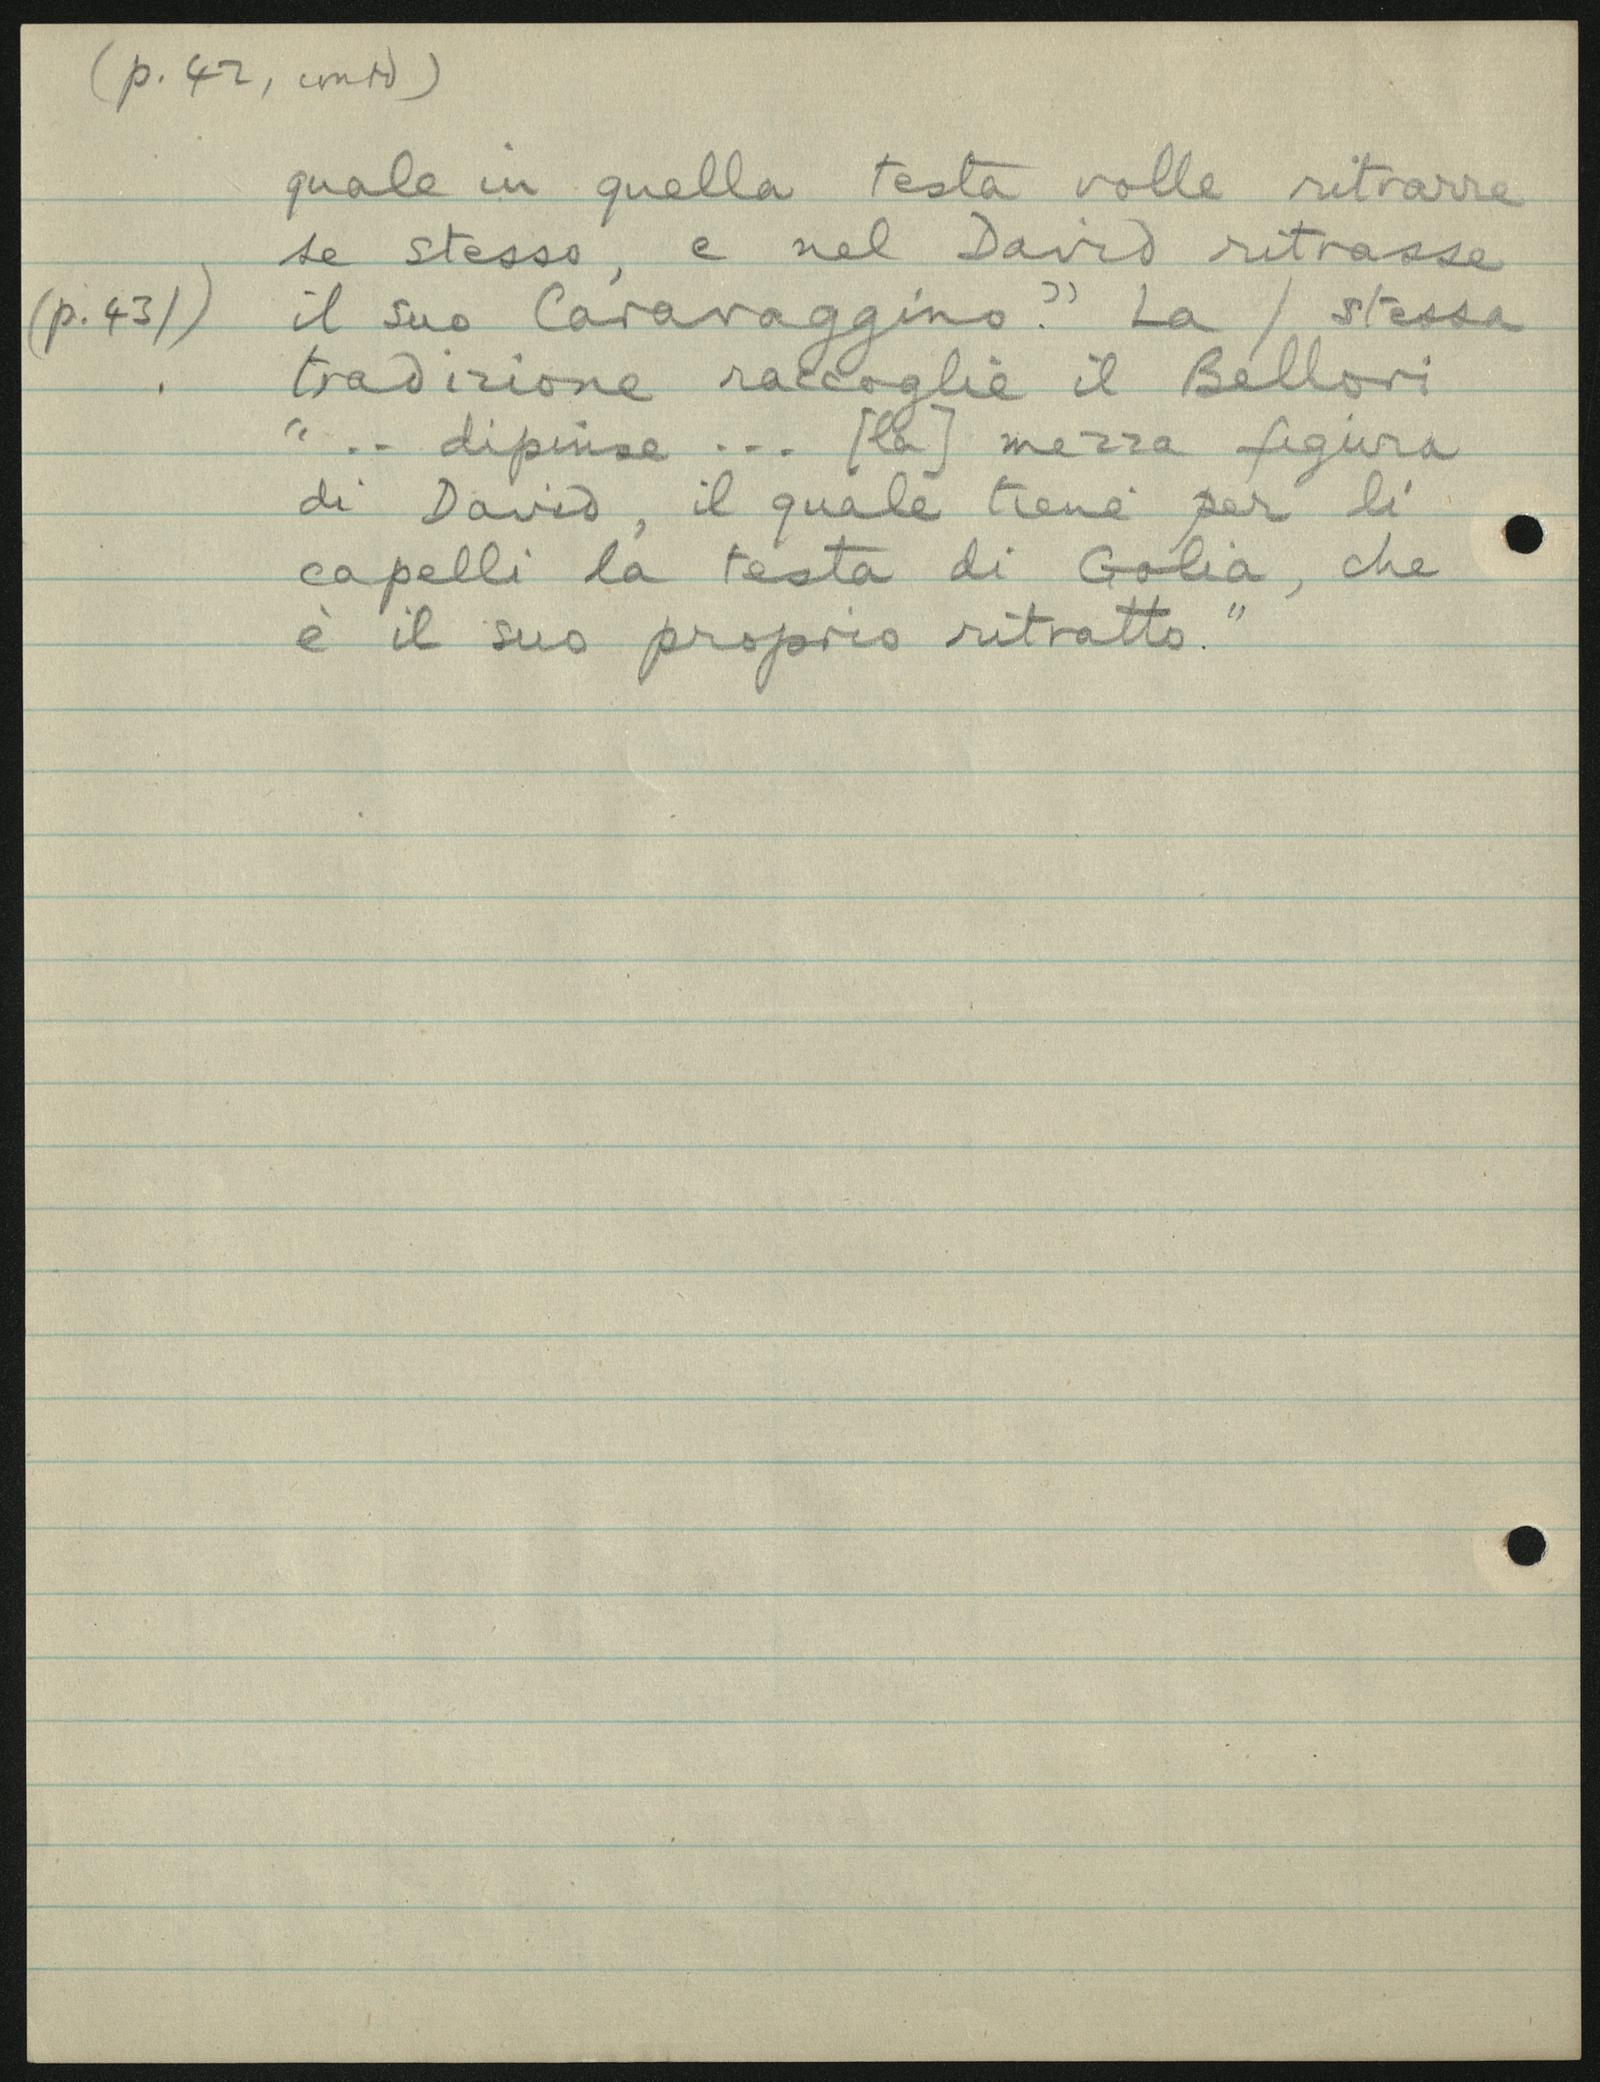 (p. 42, contd)
quale in quella testa volle ritrarre
se stesso, e nel David ritrasse
(p. 43/) il suo Caravaggino." La / stessa
tradizione raccoglie il Bellori
"... dipinse ... [la] mezza figura
di David, il quale tiene per li
capelli la testa di Golia, che
è il suo proprio ritratto."